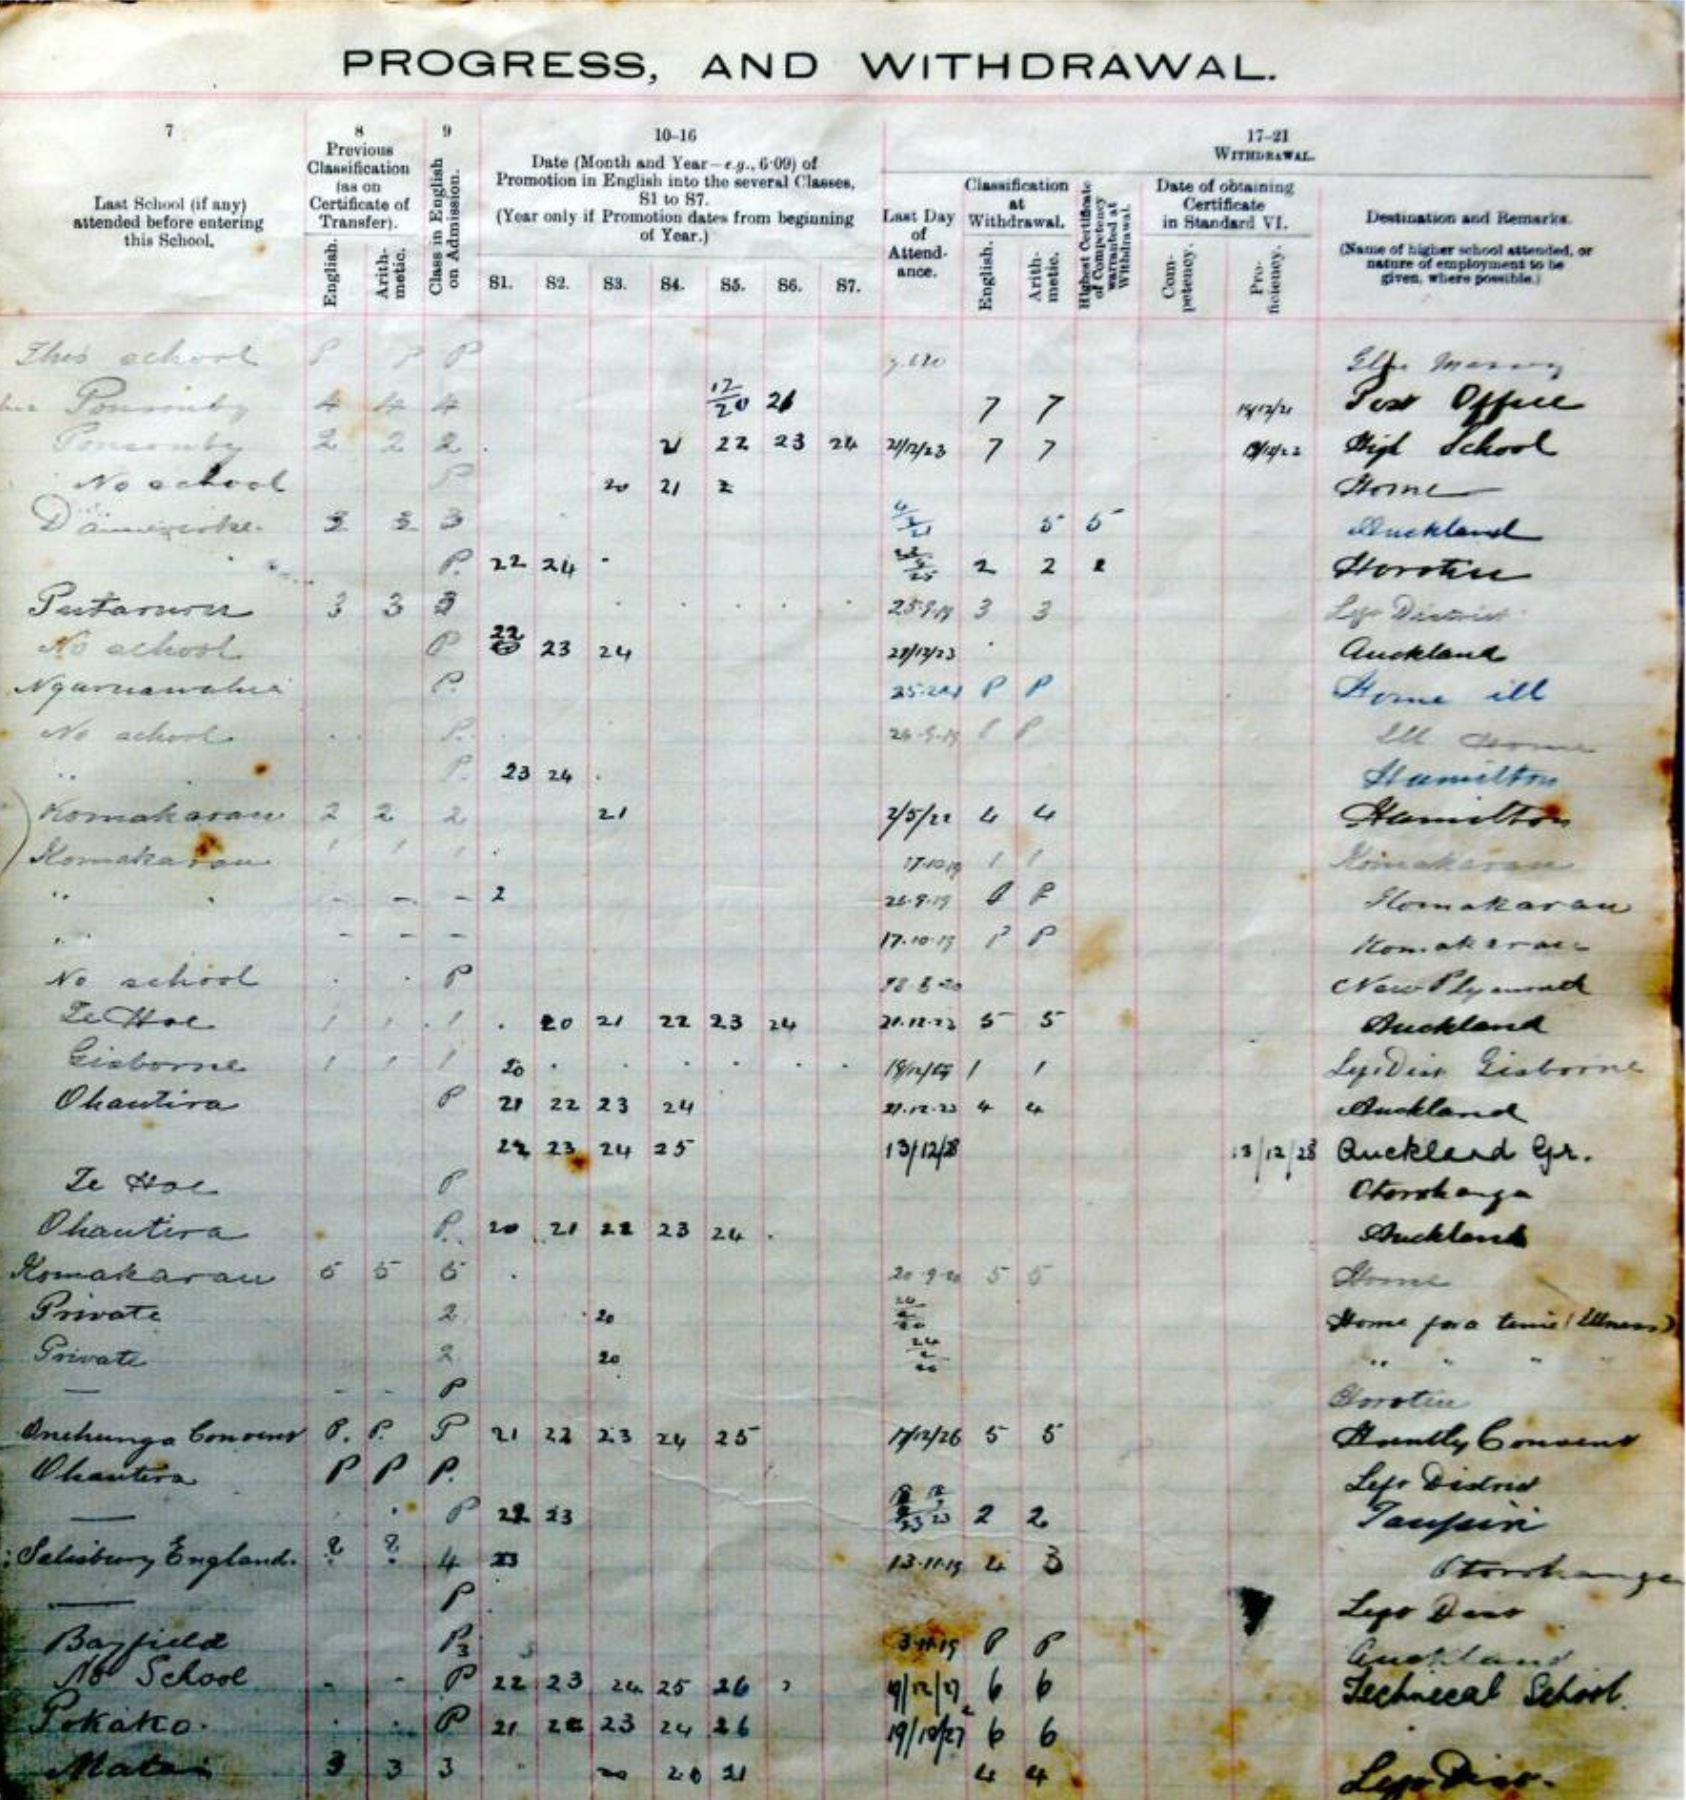 PROGRESS, AND WITHDRAWAL.
7 8 9 10-16 17-21
Last School (if any) attended before entering this School.
Previous Classification (as on Certificate of Transfer).
English. Arith-metic.
Class in English on Admission.
Date (Month and Year—e.g., 6·09) of Promotion in English into the several Classes, S1 to S7.
(Year only if Promotion dates from beginning of Year.)
S1. S2. S3. S4. S5. S6. S7.
WITHDRAWAL.
Last Day of Attend-ance.
Classification at Withdrawal.
English. Arith-metic.
Highest Certificate of Competency warranted at Withdrawal.
Date of obtaining Certificate in Standard VI.
Com-petency. Pro-ficiency.
Destination and Remarks.
(Name of higher school attended, or nature of employment to be given, where possible.)
This school P P P
Ponsonby 4 4 4 12/20 21 7 7 Post Office
Ponsonby 2 2 2 21 22 23 24 21/12/23 7 7 High School
No school P 20 21 Home
3 3 3 5 5 Auckland
P. 22 24 2 2 2 Horotiu
Putaruru 3 3 3 25.9.19 3 3 Left District
No school P 22 23 24 21/12/23 Auckland
Ngaruawahia P. P P Home ill
No school P. 26.9.19 P P Ill Home
" P. 23 24 Hamilton
Komakarau 2 2 2 21 2/5/22 4 4 Hamilton
Komakarau 1 1 1 17.10.19 1 1 Komakarau
" - - - 2 26.9.19 P P Komakarau
" - - - 17.10.19 P P Komakarau
No school P New Plymouth
Te Hoe 1 1 1 20 21 22 23 24 5 5 Auckland
Gisborne 1 1 1 20 19/12/19 1 1 Left Dist Gisborne
Ohautira P 21 22 23 24 21.12.23 4 4 Auckland
22 23 24 25 13/12/28 13/12/28 Auckland Gr.
Te Hoe P Otorohanga
Ohautira P. 20 21 22 23 24 Auckland
Komakarau 5 5 5 20.9.20 5 5 Home
Private 2 20 Home for a time (Illness)
Private 2 20 " " " "
— - - P Horotiu
Onehunga Convent P. P. P 21 22 23 24 25 17/12/26 5 5 Huntly Convent
Ohautira P P P. Left District
— P 22 23 2 2 Taupiri
Salisbury England. ? ? 4 23 13.11.19 4 3 Otorohanga
— P Left Dist
Bayfield P3 P P Auckland
No School - - P 22 23 24 25 26 9/12/27 6 6 Technical School.
Pokako. P 21 22 23 24 26 19/10/27 6 6
3 3 3 20 20 21 4 4 Left Dist.